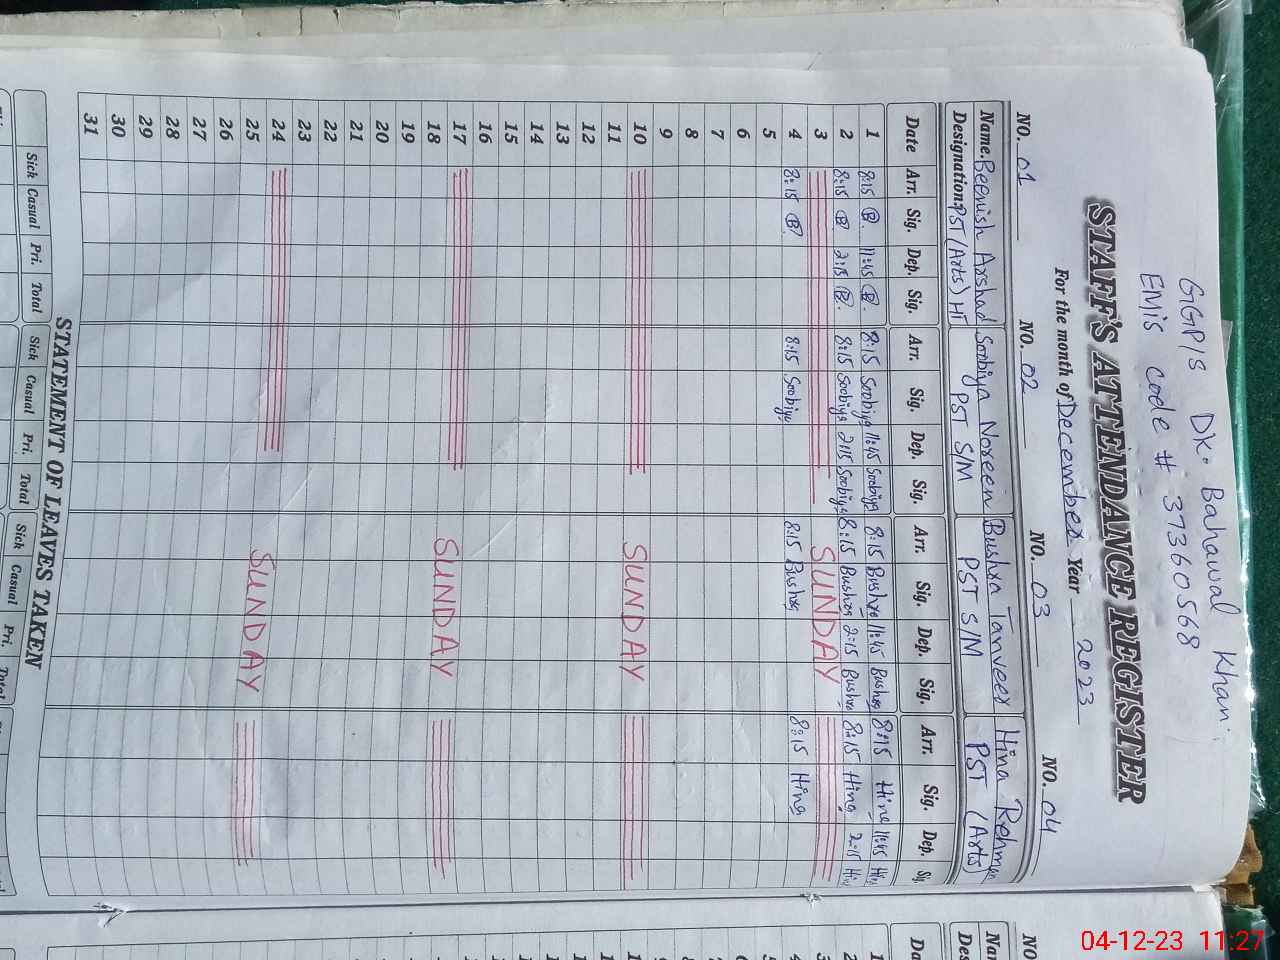 GGP/S DK. Bahawal Khan.
EMIS code # 37360568
STAFF'S ATTENDANCE REGISTER
For the month of December Year 2023
NO. 01 NO. 02 NO. 03 NO. 04
Name. Beenish Arshad Soobiya Noreen Bushra Tanveer Hina Rehman
Designation: PST (Arts) HT PST S/M PST S/M PST (Arts)
Date Arr. Sig. Dep. Sig. Arr. Sig. Dep. Sig. Arr. Sig. Dep. Sig. Arr. Sig. Dep. Sig.
1 8:15 B. 11:45 B. 8:15 Soobiya 11:45 Soobiya 8:15 Bushra 11:45 Bushra 8:15 Hina 11:45 Hina
2 8:15 B 2:15 B. 8:15 Soobiya 2:15 Soobiya 8:15 Bushra 2:15 Bushra 8:15 Hina 2:15 Hina
3 SUNDAY
4 8:15 B 8:15 Soobiya 8:15 Bushra 8:15 Hina
5
6
7
8
9
10 SUNDAY
11
12
13
14
15
16
17 SUNDAY
18
19
20
21
22
23
24 SUNDAY
25
26
27
28
29
30
31
STATEMENT OF LEAVES TAKEN
Sick Casual Pri. Total Sick Casual Pri. Total Sick Casual Pri. Total
NO
Nam
Des
Da
1
2
3
4
5
6
7
8
9
10
11
12
13
14
15
16
17
18
19
20
21
22
23
24
25
26
27
28
29
30
31
04-12-23 11:27